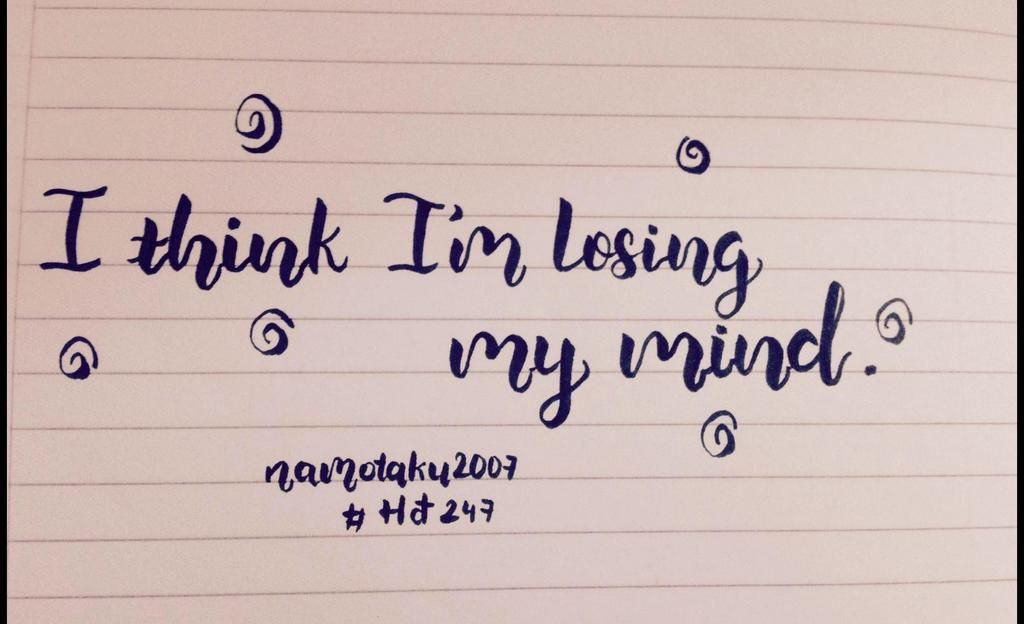 I think I'm losing
my mind.
namotaku2007
# Hđ247